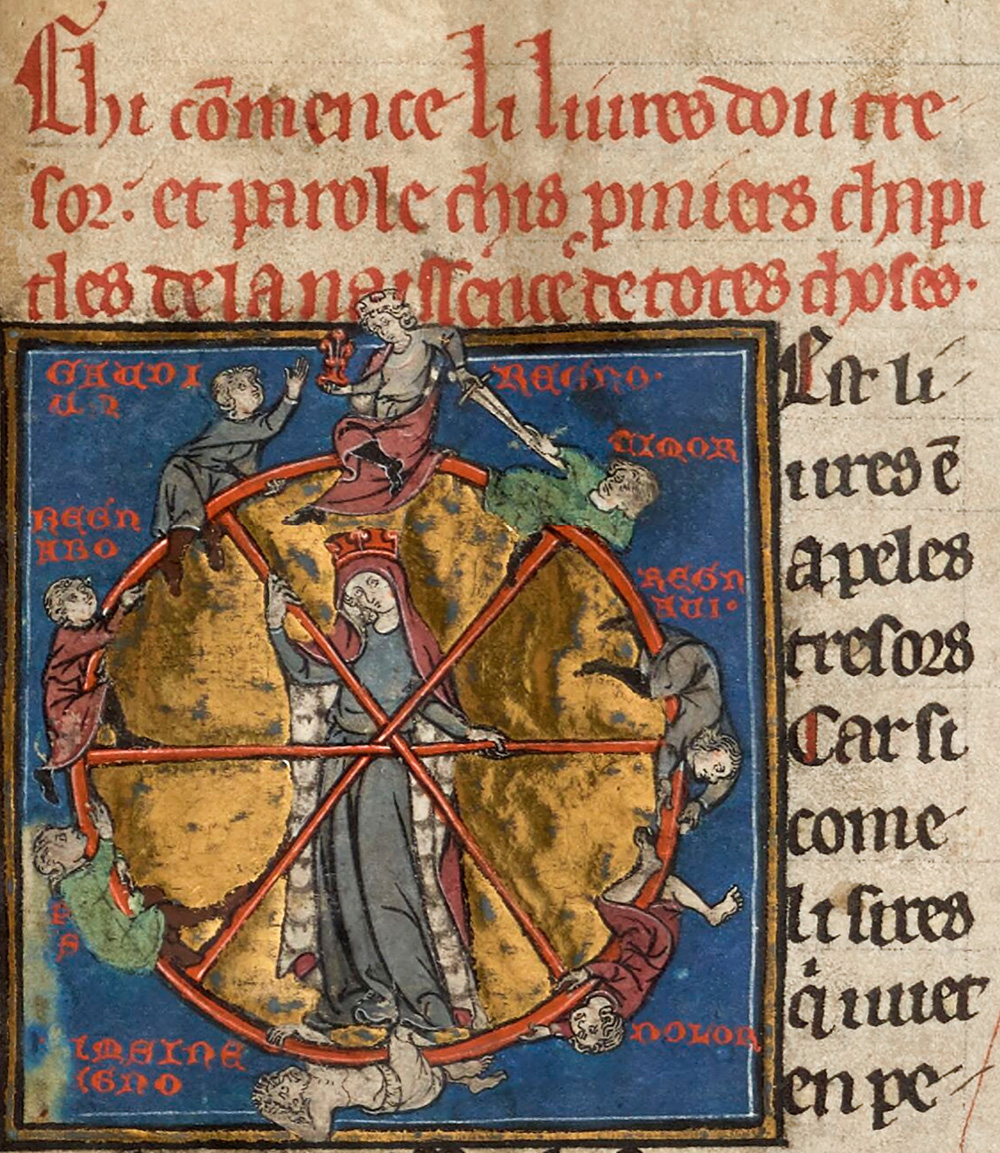 Chi cōmence li liures dou tre
sor: et parole chis pmiers chapi
tles de la naissence de totes choses.
GAUDI
UM
REGNO·
TIMOR
REGN
ABO
REGN
AUI·
DOLOR
IMEINE
EGNO
Est li
iures ē
apeles
tresors
Car si
come
li sires
q̇ uuet
en pe